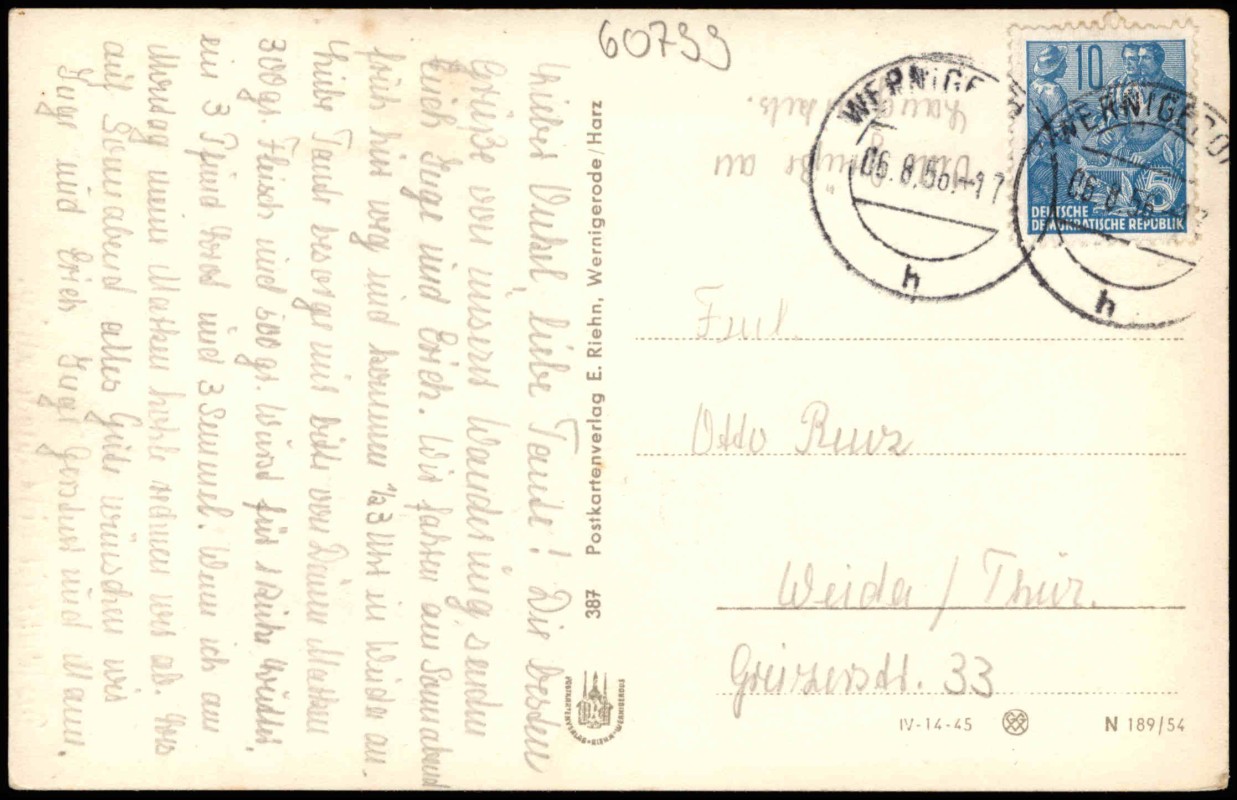 60799
Lieber Onkel, liebe Tante! Die besten
Grüße von unserer Wanderung senden
Euch Inge und Erich. Wir fahren am Sonnabend
früh hier weg und kommen 1/23 Uhr in Weida an.
Liebe Tante besorge mir bitte von Deinen Marken
300gr. Fleisch und 500gr. Wurst für
ein 3 Pfund Brot und 3 Semmel. Wenn ich am
Montag meine Marken hole rechnen wir ab. Bis
auf Sonnabend alles Gute wünschen wir
Inge und Erich und Mann.
387 Postkartenverlag E. Riehn, Wernigerode/Harz
POSTKARTENVERLAG E. RIEHN WERNIGERODE
Grüße an
WERNIGE
06.8.56.-17
h
WERNIGERO
06.8.56
h
10
5
DEUTSCHE
DEMOKRATISCHE REPUBLIK
Faml.
Otto
Weida / Thür.
Greizerstr. 33
IV-14-45
N 189/54